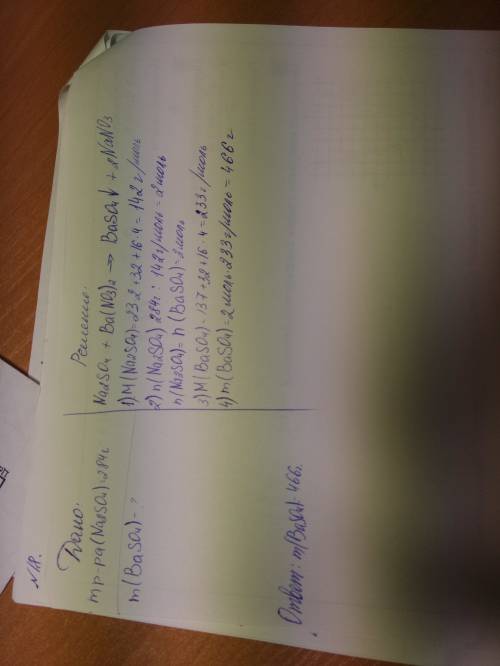 N18.
Дано:
m р-ра(Na2SO4)=284г
m(BaSO4)-?
Решение:
Na2SO4 + Ba(NO3)2 → BaSO4↓ + 2NaNO3
1) M(Na2SO4)=23·2+32+16·4=142 г/моль
2) n(Na2SO4) 284г : 142г/моль = 2 моль
n(Na2SO4)= n(BaSO4)=2 моль
3) M(BaSO4)=137+32+16·4=233г/моль
4) m(BaSO4)=2 моль·233г/моль=466г
Ответ: m(BaSO4)=466г.